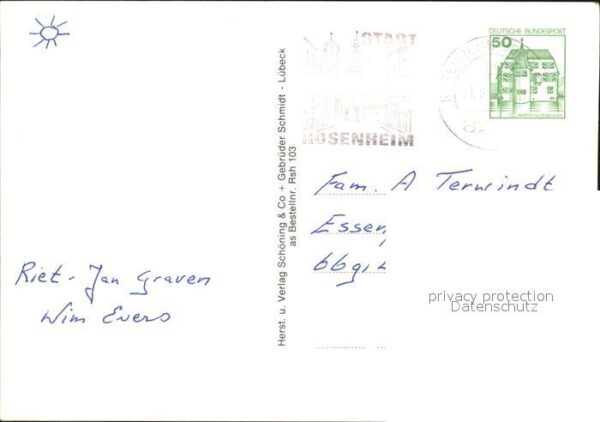 STADT
ROSENHEIM
DEUTSCHE BUNDESPOST
50
Herst. u. Verlag Schöning & Co + Gebrüder Schmidt - Lübeck
as Bestellnr. Rsh 103
Fam. A Terwindt
Essen
Riet - Jan Graven
Wim Evers
privacy protection
Datenschutz